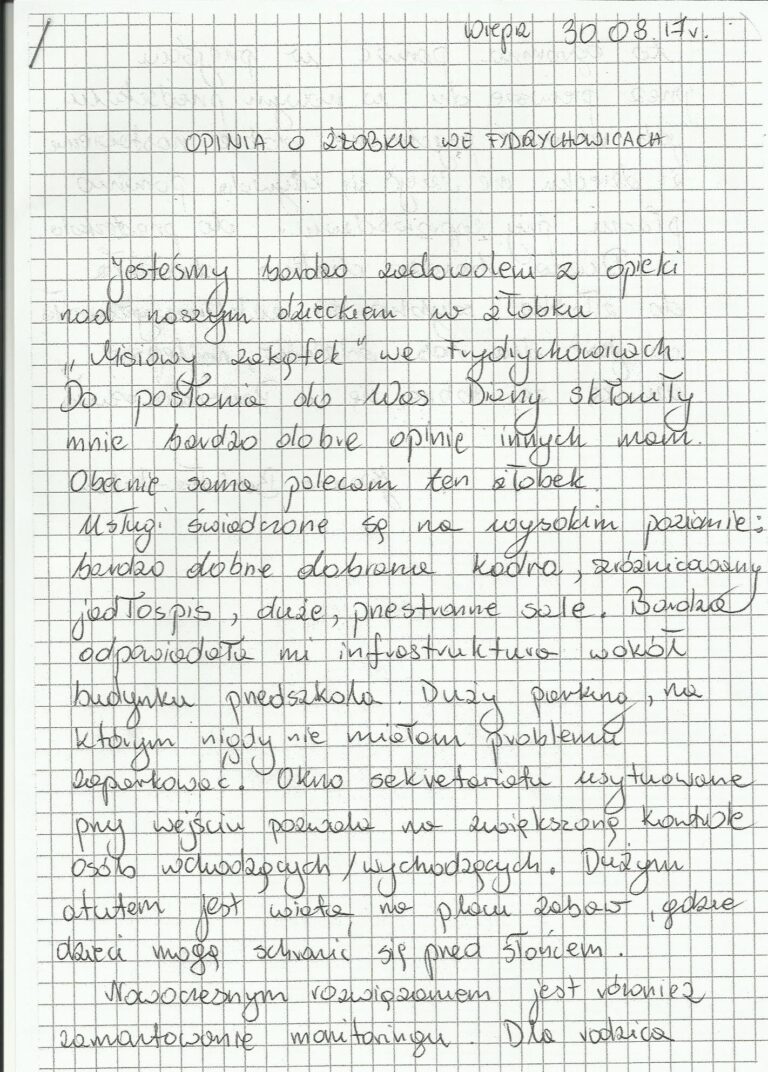 Wieprz 30.08.17r.
OPINIA O ŻŁOBKU WE FYDRYCHOWICACH
Jesteśmy bardzo zadowoleni z opieki
nad naszym dzieckiem w żłobku
„Misiowy zakątek" we Frydrychowicach.
Do posłania do Was Diany skłoniły
mnie bardzo dobre opinie innych mam.
Obecnie sama polecam ten żłobek.
Usługi świadczone są na wysokim poziomie:
bardzo dobrze dobrana kadra, zróżnicowany
jadłospis, duże, przestronne sale. Bardzo
odpowiadała mi infrastruktura wokół
budynku przedszkola. Duży parking, na
którym nigdy nie miałam problemu
zaparkować. Okno sekretariatu usytuowane
przy wejściu pozwala na zwiększoną kontrolę
osób wchodzących/wychodzących. Dużym
atutem jest wiata na placu zabaw, gdzie
dzieci mogą schronić się przed słońcem.
Nowoczesnym rozwiązaniem jest również
zamontowanie monitoringu. Dla rodzica